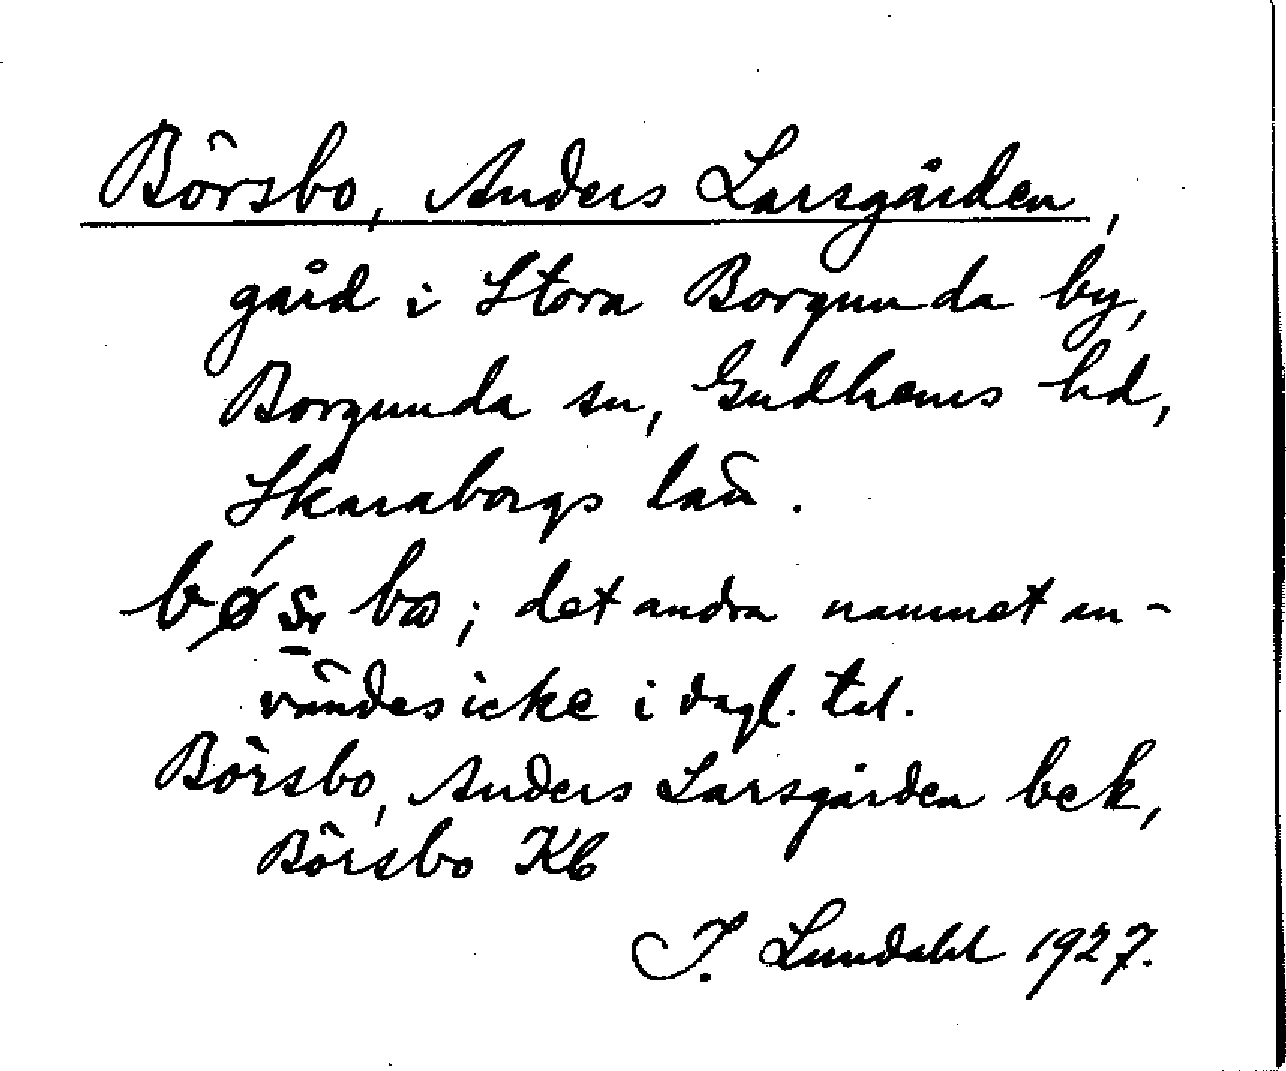 Börsbo, Anders Larsgården,
gård i Stora Borgunda by,
Borgunda sn, Gudhems hd,
Skaraborgs län.
det andra namnet an-
vändes icke i dagl. tal.
Börsbo, Anders Larsgården bek,
Börsbo Kb
I. Lundahl 1927.